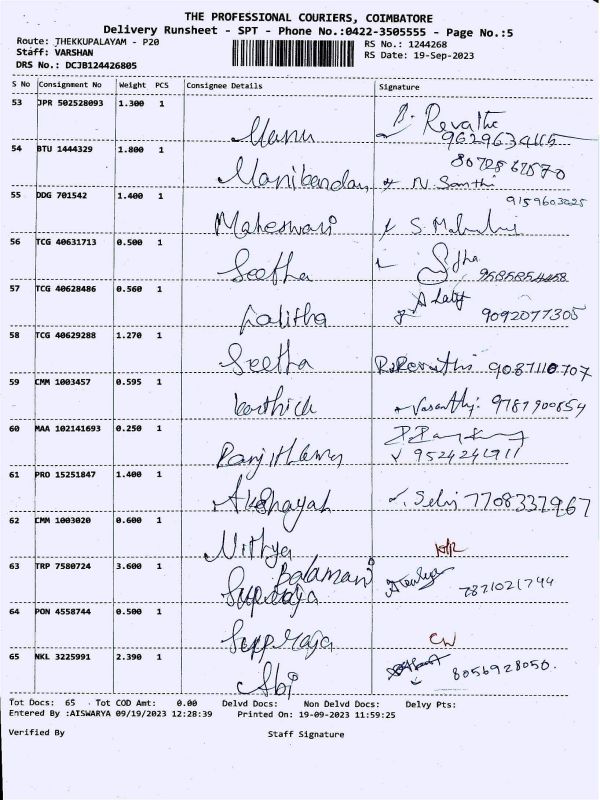 THE PROFESSIONAL COURIERS, COIMBATORE
Delivery Runsheet - SPT - Phone No.:0422-3505555 - Page No.:5
Route: THEKKUPALAYAM - P20 RS No.: 1244268
Staff: VARSHAN RS Date: 19-Sep-2023
DRS No.: DCJB124426805
S No Consignment No Weight PCS Consignee Details Signature
53 JPR 502528093 1.300 1 Manu B. Revathi
9629634115
54 BTU 1444329 1.800 1 Manikandan N. Santhi
55 DDG 701542 1.400 1 Maheswari 9159603025
56 TCG 40631713 0.500 1 Seetha 9585854458
57 TCG 40628486 0.560 1 Lalitha 9092077305
58 TCG 40629288 1.270 1 Seetha R.Revathi 9087110707
59 CMM 1003457 0.595 1 Karthick Vasanthi. 9787900854
60 MAA 102141693 0.250 1 Ranjithkumar
9524241911
61 PRO 15251847 1.400 1 Akshayah Selvi 7708337967
62 CMM 1003020 0.600 1 Nithya
63 TRP 7580724 3.600 1 Balamani 7871021744
64 PON 4558744 0.500 1 Suppraja CW
65 NKL 3225991 2.390 1 Abi 8056928050.
Tot Docs: 65 Tot COD Amt: 0.00 Delvd Docs: Non Delvd Docs: Delvy Pts:
Entered By :AISWARYA 09/19/2023 12:28:39 Printed On: 19-09-2023 11:59:25
Verified By Staff Signature